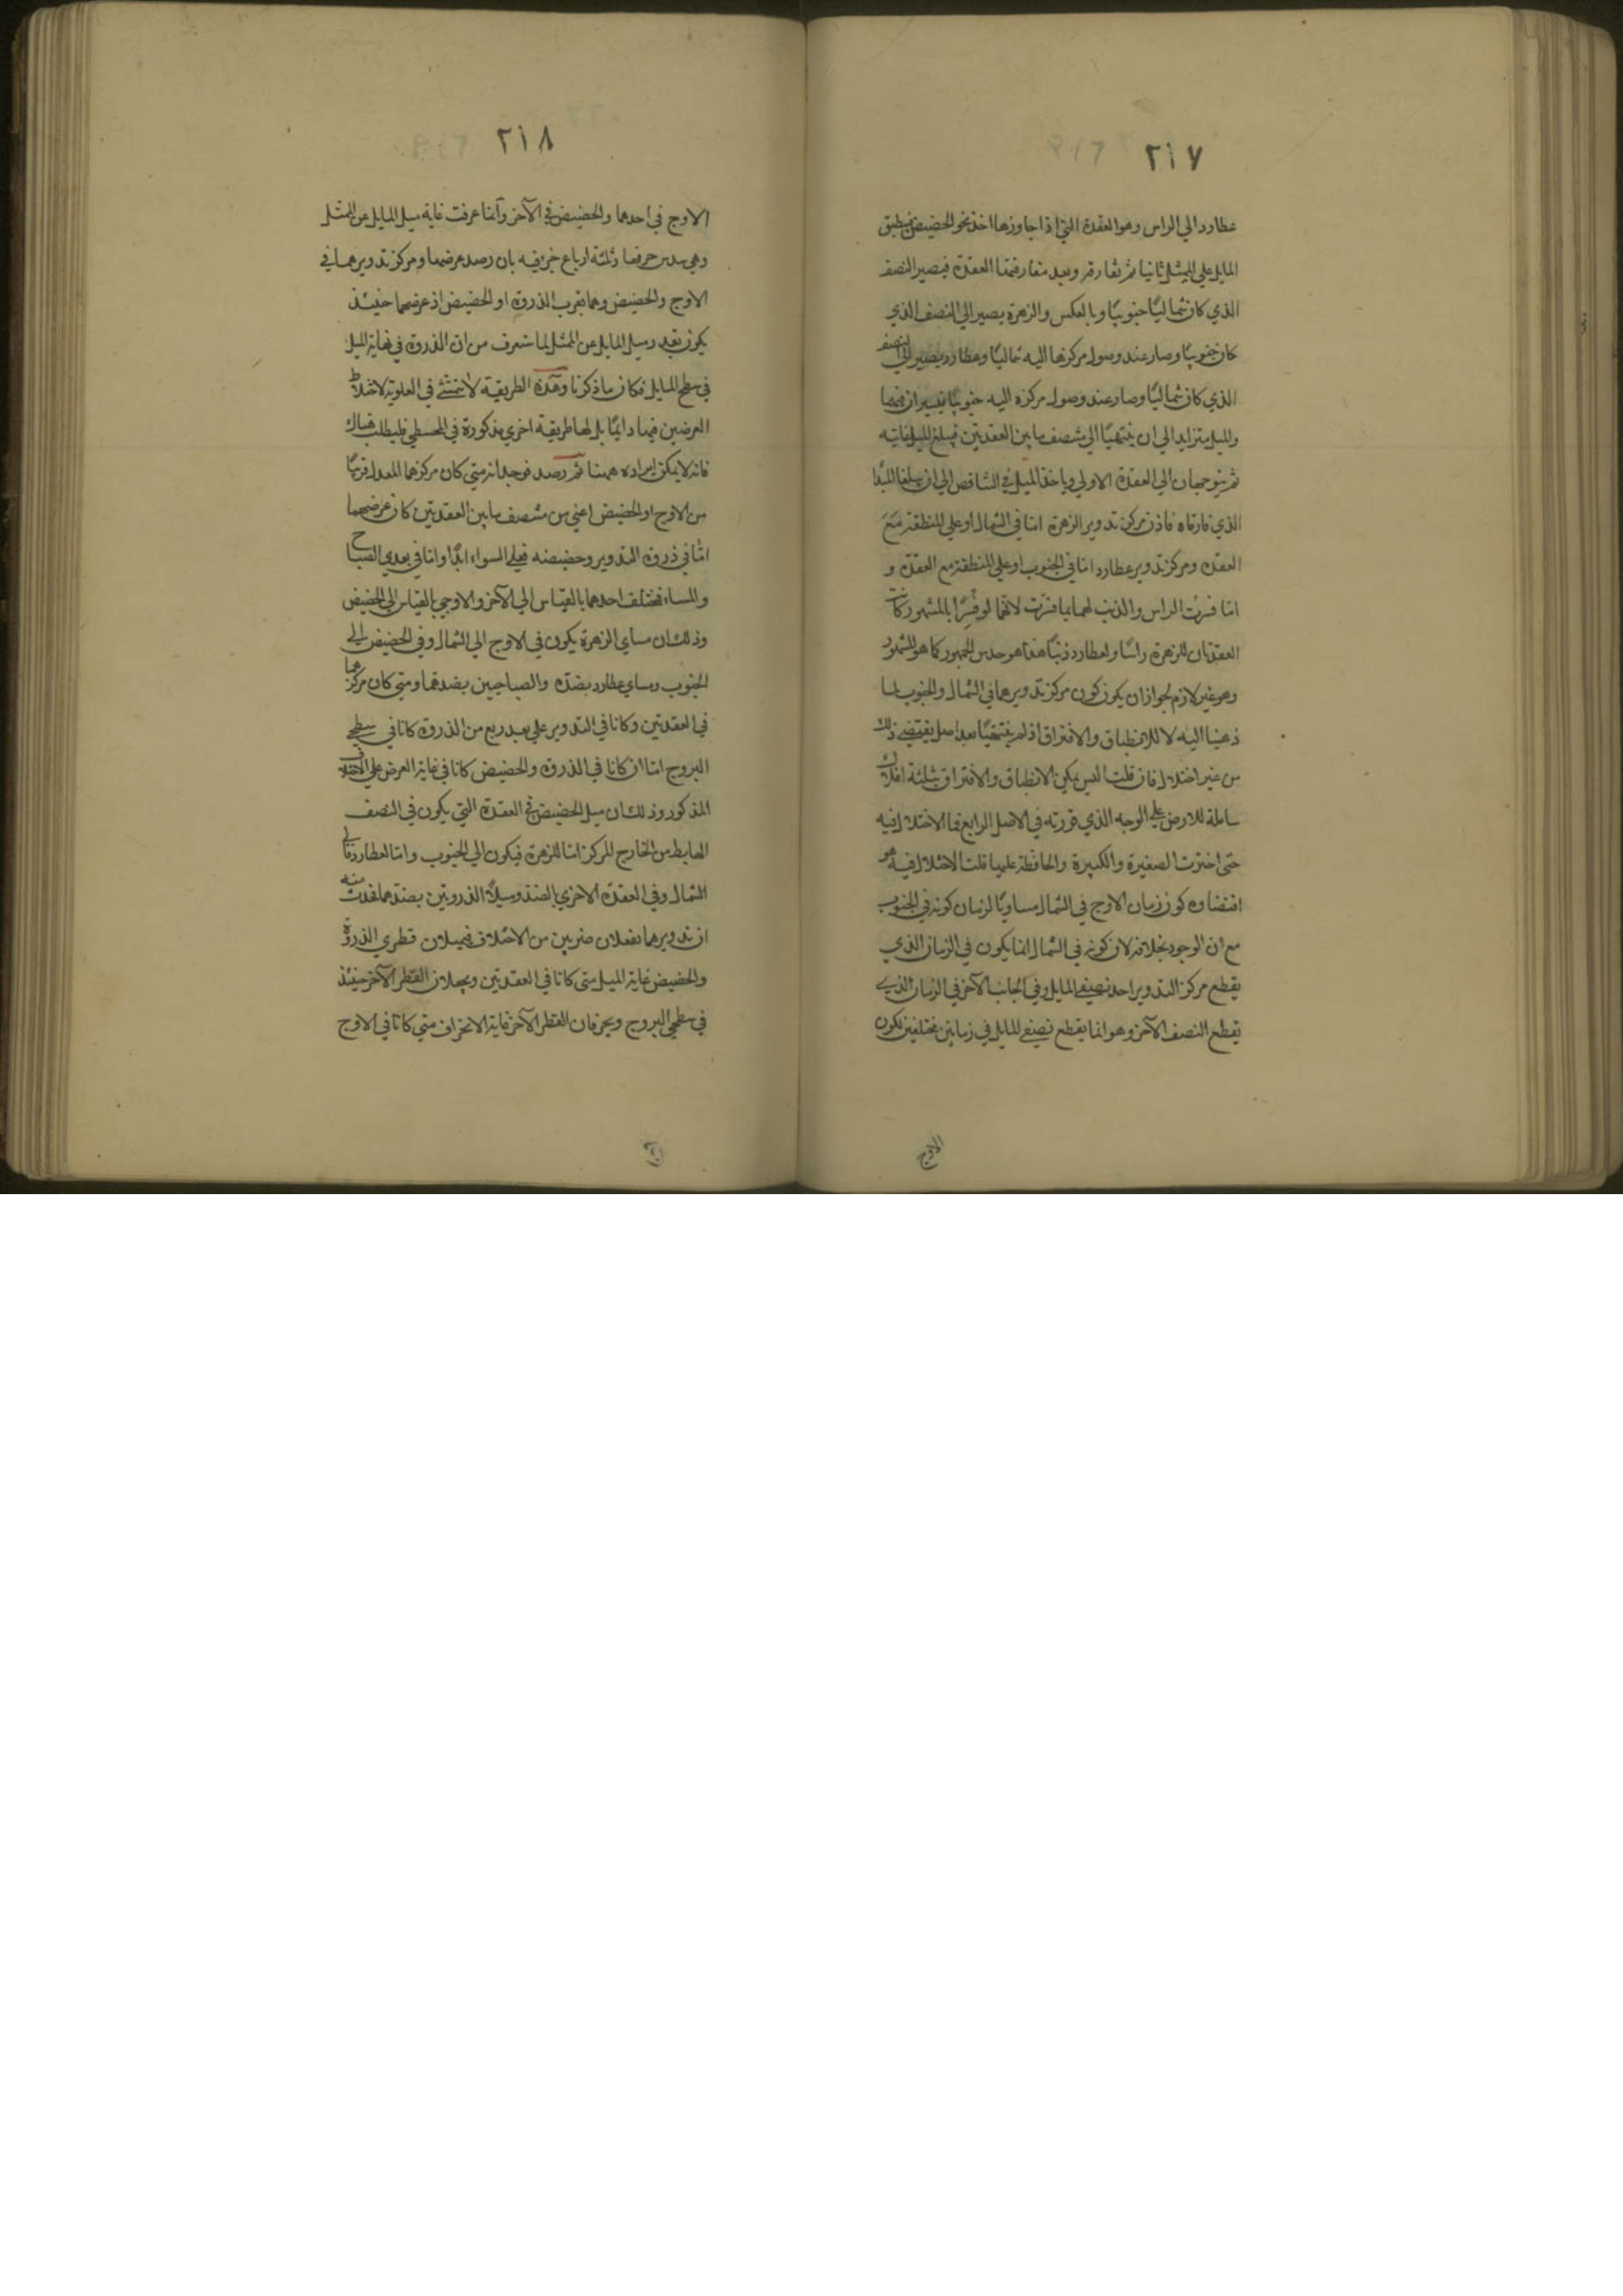 ٢١٧
عطارد الي الراس وهو العقدة التي اذا جاوزها اخذ نحو الحضيض فينطبق
المايل علي الممثل ثانيا ثم تفارقه وبعد مفارقتها العقدة فيصير النصف
الذي كان شماليًا جنوبيًا وبالعكس والزهرة يصير الي النصف الذي
كان جنوبيًا وصار عند وصول مركزها اليه شماليًا وعطارد يصير الي النصف
الذي كان شماليًا وصار عند وصول مركزه اليه جنوبيًا فيسيران فيهما
والميل متزايد الي ان ينتهيا الي منتصف ما بين العقدتين فيبلغ الميل غايته
ثم يتوجهان الي العقدة الاولي وياخذ الميل في التناقص الي ان يبلغا المبدا
الذي فارقاه فاذن مركز تدوير الزهرة اما في الشمال او علي المنطقة مع
العقدة ومركز تدوير عطارد اما في الجنوب او علي المنطقة مع العقدة و
انا فسرت الراس والذنب لهما بما فسرت لانهما لو فسرا بالمشهور كانت
العقدتان للزهرة راسًا ولعطارد ذنبًا هذا هو حدس الجمهور كما هو المشهور
وهو غير لازم لجواز ان يكون كون مركز تدويرهما في الشمال والجنوب لما
ذهبنا اليه لا للانطباق والافتراق اذ لم ينتهيا بعد اصل يقتضي ذلك
من غير اختلال فان قلت اليس يمكن الانطباق والافتراق بثلثة افلاك
شاملة للارض علي الوجه الذي قررته في الاصل الرابع فما الاختلال فيه
حتي اخترت الصغيرة والكبيرة والحافظة عليها قلت الاختلال فيه هو
اقتضاوه كون زمان الاوج في الشمال مساويًا لزمان كونه في الجنوب
مع ان الوجود بخلافه لان كونه في الشمال انما يكون في الزمان الذي
يقطع مركز التدوير احد نصفي المايل وفي الجانب الآخر في الزمان الذي
يقطع النصف الآخر وهو انما يقطع نصفي المايل في زمانين مختلفين لكون
الاوج
٢١٨
الاوج في احدهما والحضيض في الآخر وانما عرفت غاية ميل المايل عن الممثل
وهي سدس جزء فيها وثلثة ارباع جزء فيه بان رصد عرضهما ومركز تدويرهما في
الاوج والحضيض وهما بقرب الذروة او الحضيض اذ عرضهما حينئذ
يكون بقدر ميل المايل عن الممثل لما ستعرف من ان الذروة في نهاية الميل
في سطح المايل فكان ما ذكرنا وهذه الطريقة لا تتمشي في العلوية لاختلاط
العرضين فيها دايمًا بل لها طريقة اخري مذكورة في المجسطي فليطلب هناك
فانه لا يمكن ايراده ههنا ثم رصد فوجد انه متي كان مركزهما المعدل قريبًا
من الاوج او الحضيض اعني من منتصف ما بين العقدتين كان عرضهما
اما في ذروة التدوير وحضيضه فعلي السواء ابدًا واما في بعدي الصباح
والمساء فمختلف احدهما بالقياس الي الآخر والاوجي بالقياس الي الحضيض
وذلك ان مسائي الزهرة يكون في الاوج الي الشمال وفي الحضيض الي
الجنوب ومسائي عطارد بضده والصباحيين بضدهما ومتي كان مركزهما
في العقدتين وكانا في التدوير علي بعد ربع من الذروة كانا في سطح
البروج اما ان كانا في الذروة والحضيض كانا في غاية العرض علي الاختلاف
المذكور وذلك ان ميل الحضيض في العقدة التي يكون في النصف
الهابط من الخارج المركز اما للزهرة فيكون الي الجنوب واما لعطارد فالي
الشمال وفي العقدة الاخري بالضد وميلا الذروتين بضدهما فحدث منه
ان تدويرهما يفعلان ضربين من الاختلاف فيميلان قطري الذروة
والحضيض غاية الميل متي كانا في العقدتين ويجعلان القطر الآخر حينئذ
في سطحي البروج ويحرفان القطر الآخر غاية الانحراف متي كانا في الاوج